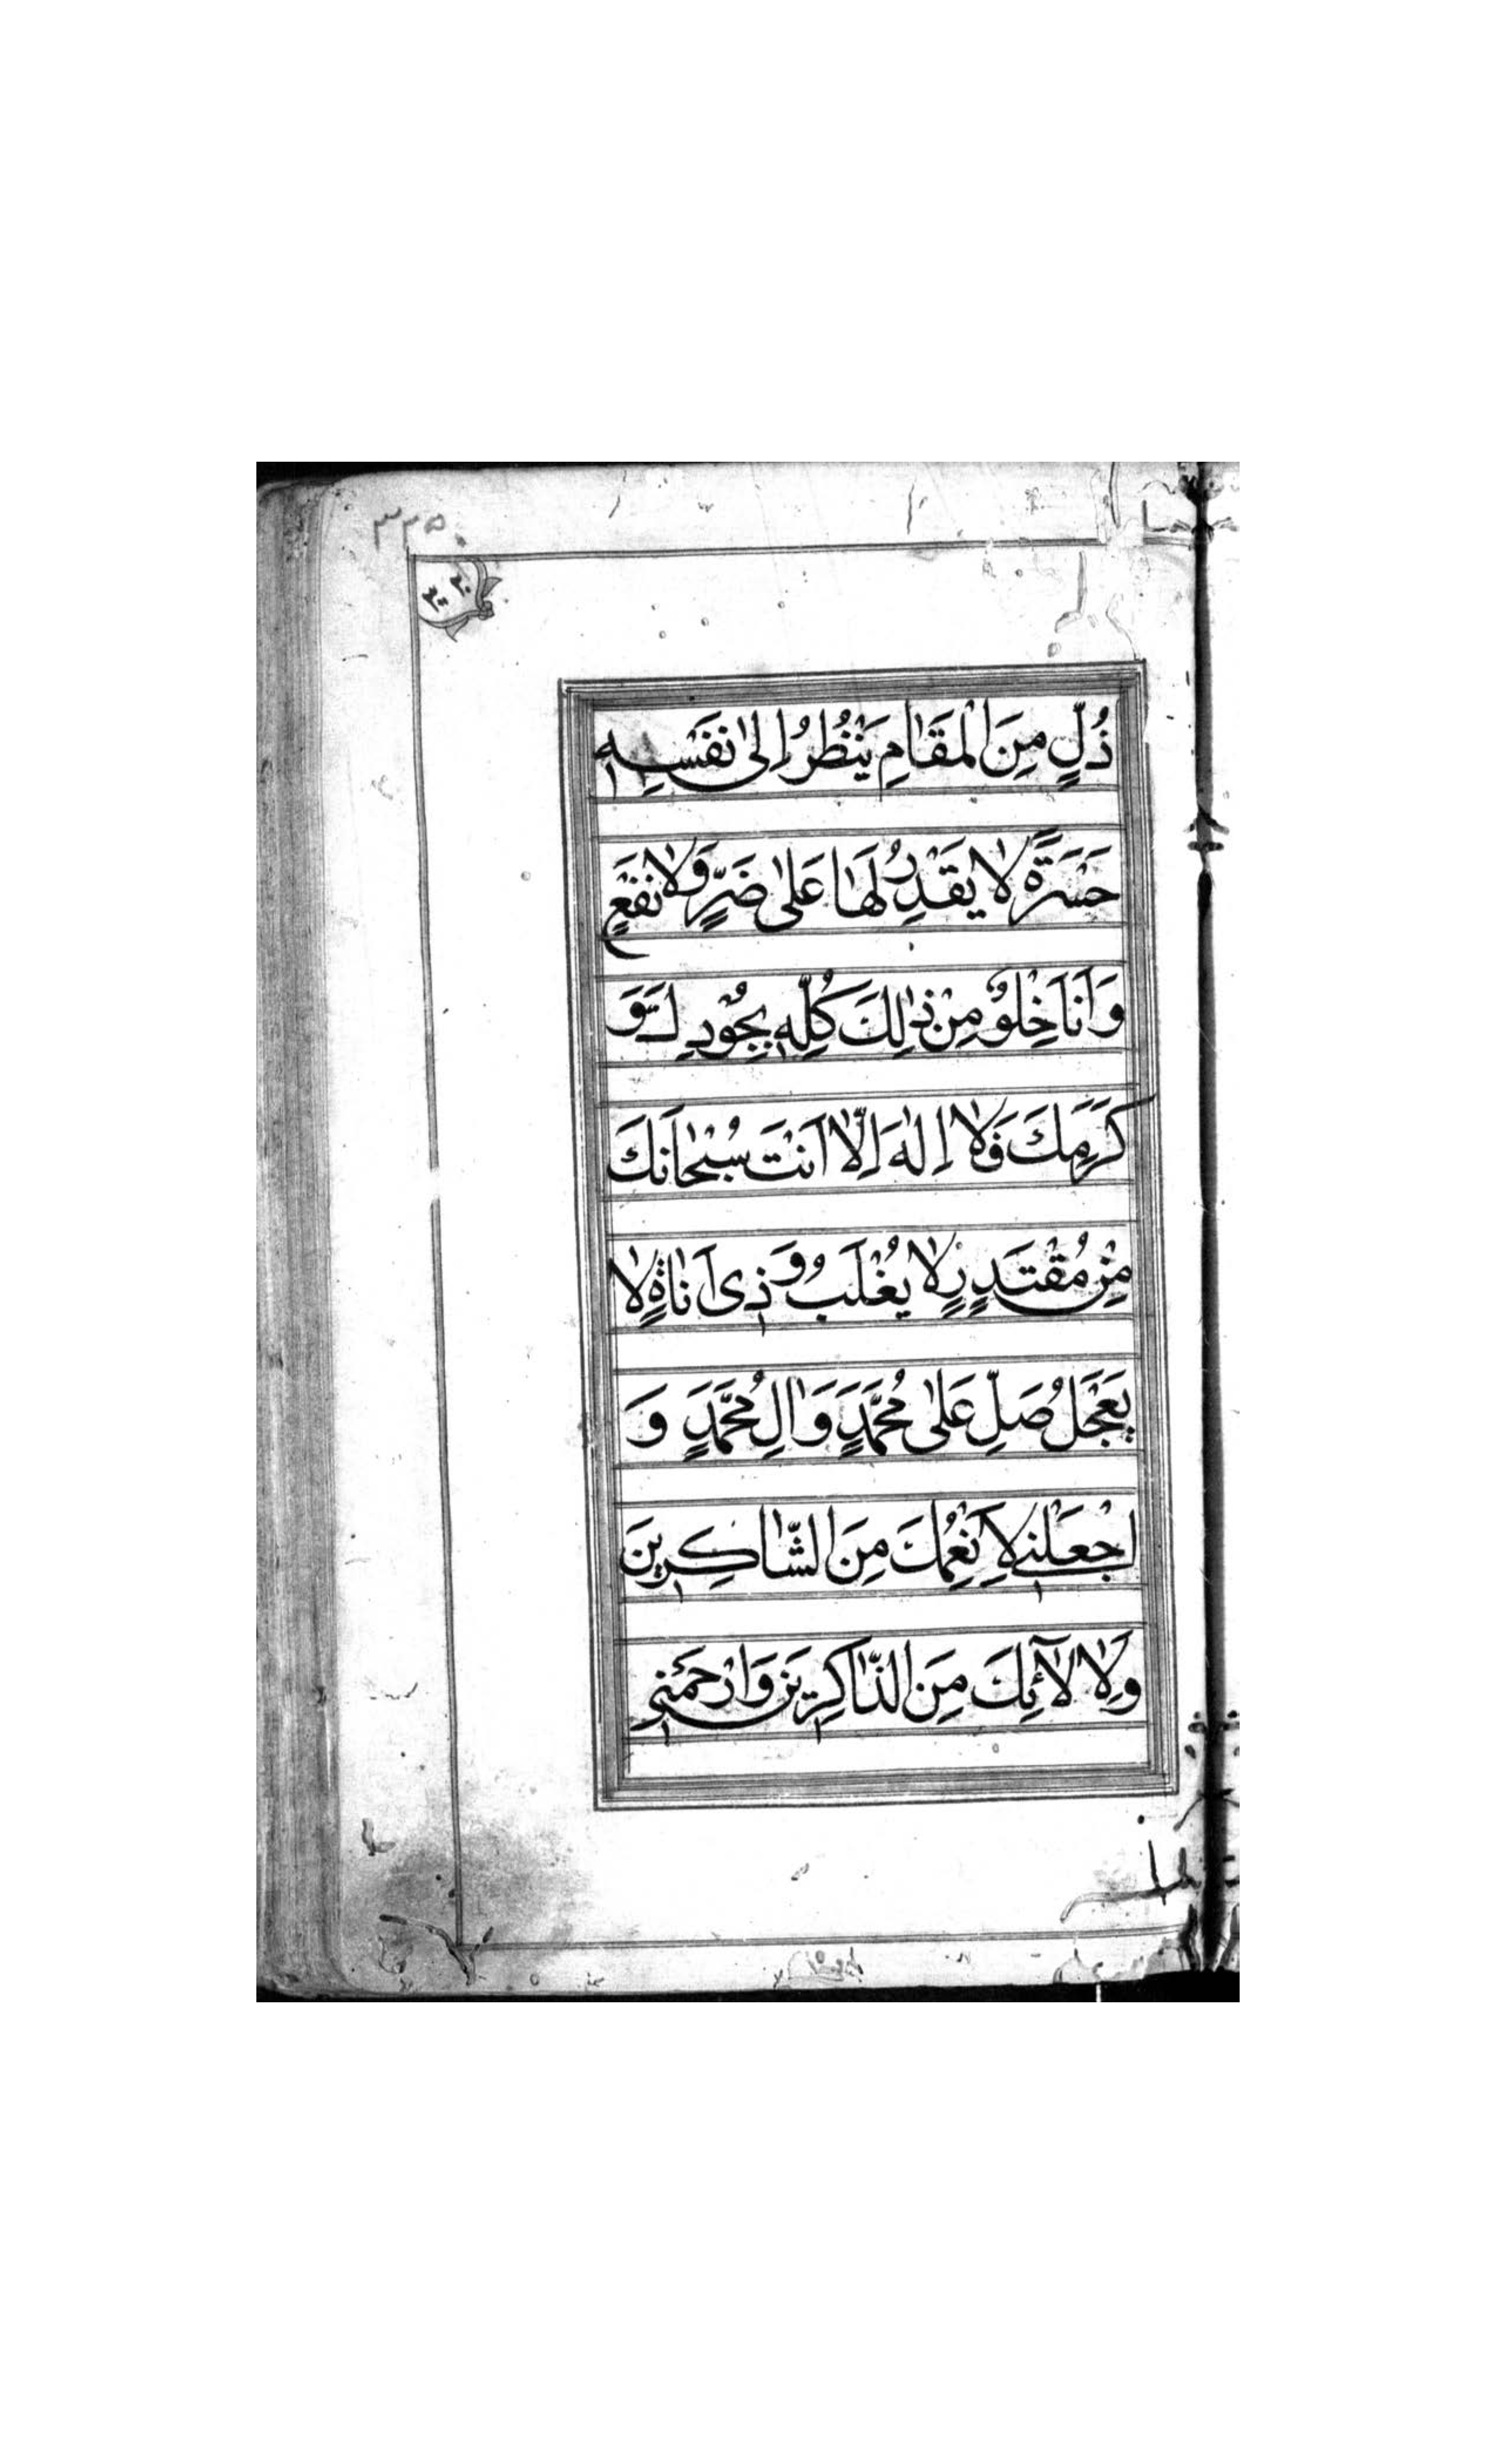 ۳۳۵
ذُلٍّ مِنَ الْمَقَامِ يَنْظُرُ اِلىٰ نَفْسِهٖ
حَسْرَةً لَا يَقْدِرُ لَهَا عَلىٰ ضَرٍّ وَلَا نَفْعٍ
وَ اَنَا خِلْوٌ مِنْ ذٰلِكَ كُلِّهٖ بِجُوْدِكَ وَ
كَرَمِكَ فَلَا اِلٰهَ اِلَّا اَنْتَ سُبْحَانَكَ
مِنْ مُقْتَدِرٍ لَا يُغْلَبُ وَ ذِى اَنَاةٍ لَا
يَعْجَلُ صَلِّ عَلىٰ مُحَمَّدٍ وَ اٰلِ مُحَمَّدٍ وَ
اجْعَلْنِى لِاَنْعُمِكَ مِنَ الشَّاكِرِينَ
وَ لِاٰلَآئِكَ مِنَ الذَّاكِرِينَ وَارْحَمْنِى